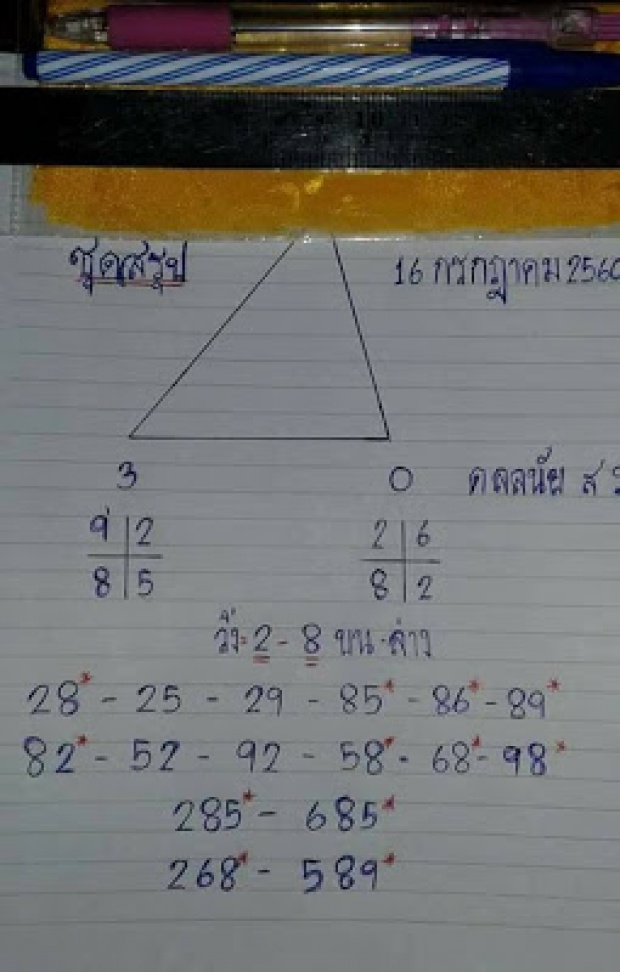 ชุดสรุป 16 กรกฎาคม 2560
3 0
9 2 2 6
8 5 8 2
วิ่ง= 2 - 8 บน-ล่าง
28* - 25 - 29 - 85* - 86* - 89*
82* - 52 - 92 - 58* - 68* - 98*
285* - 685*
268* - 589*